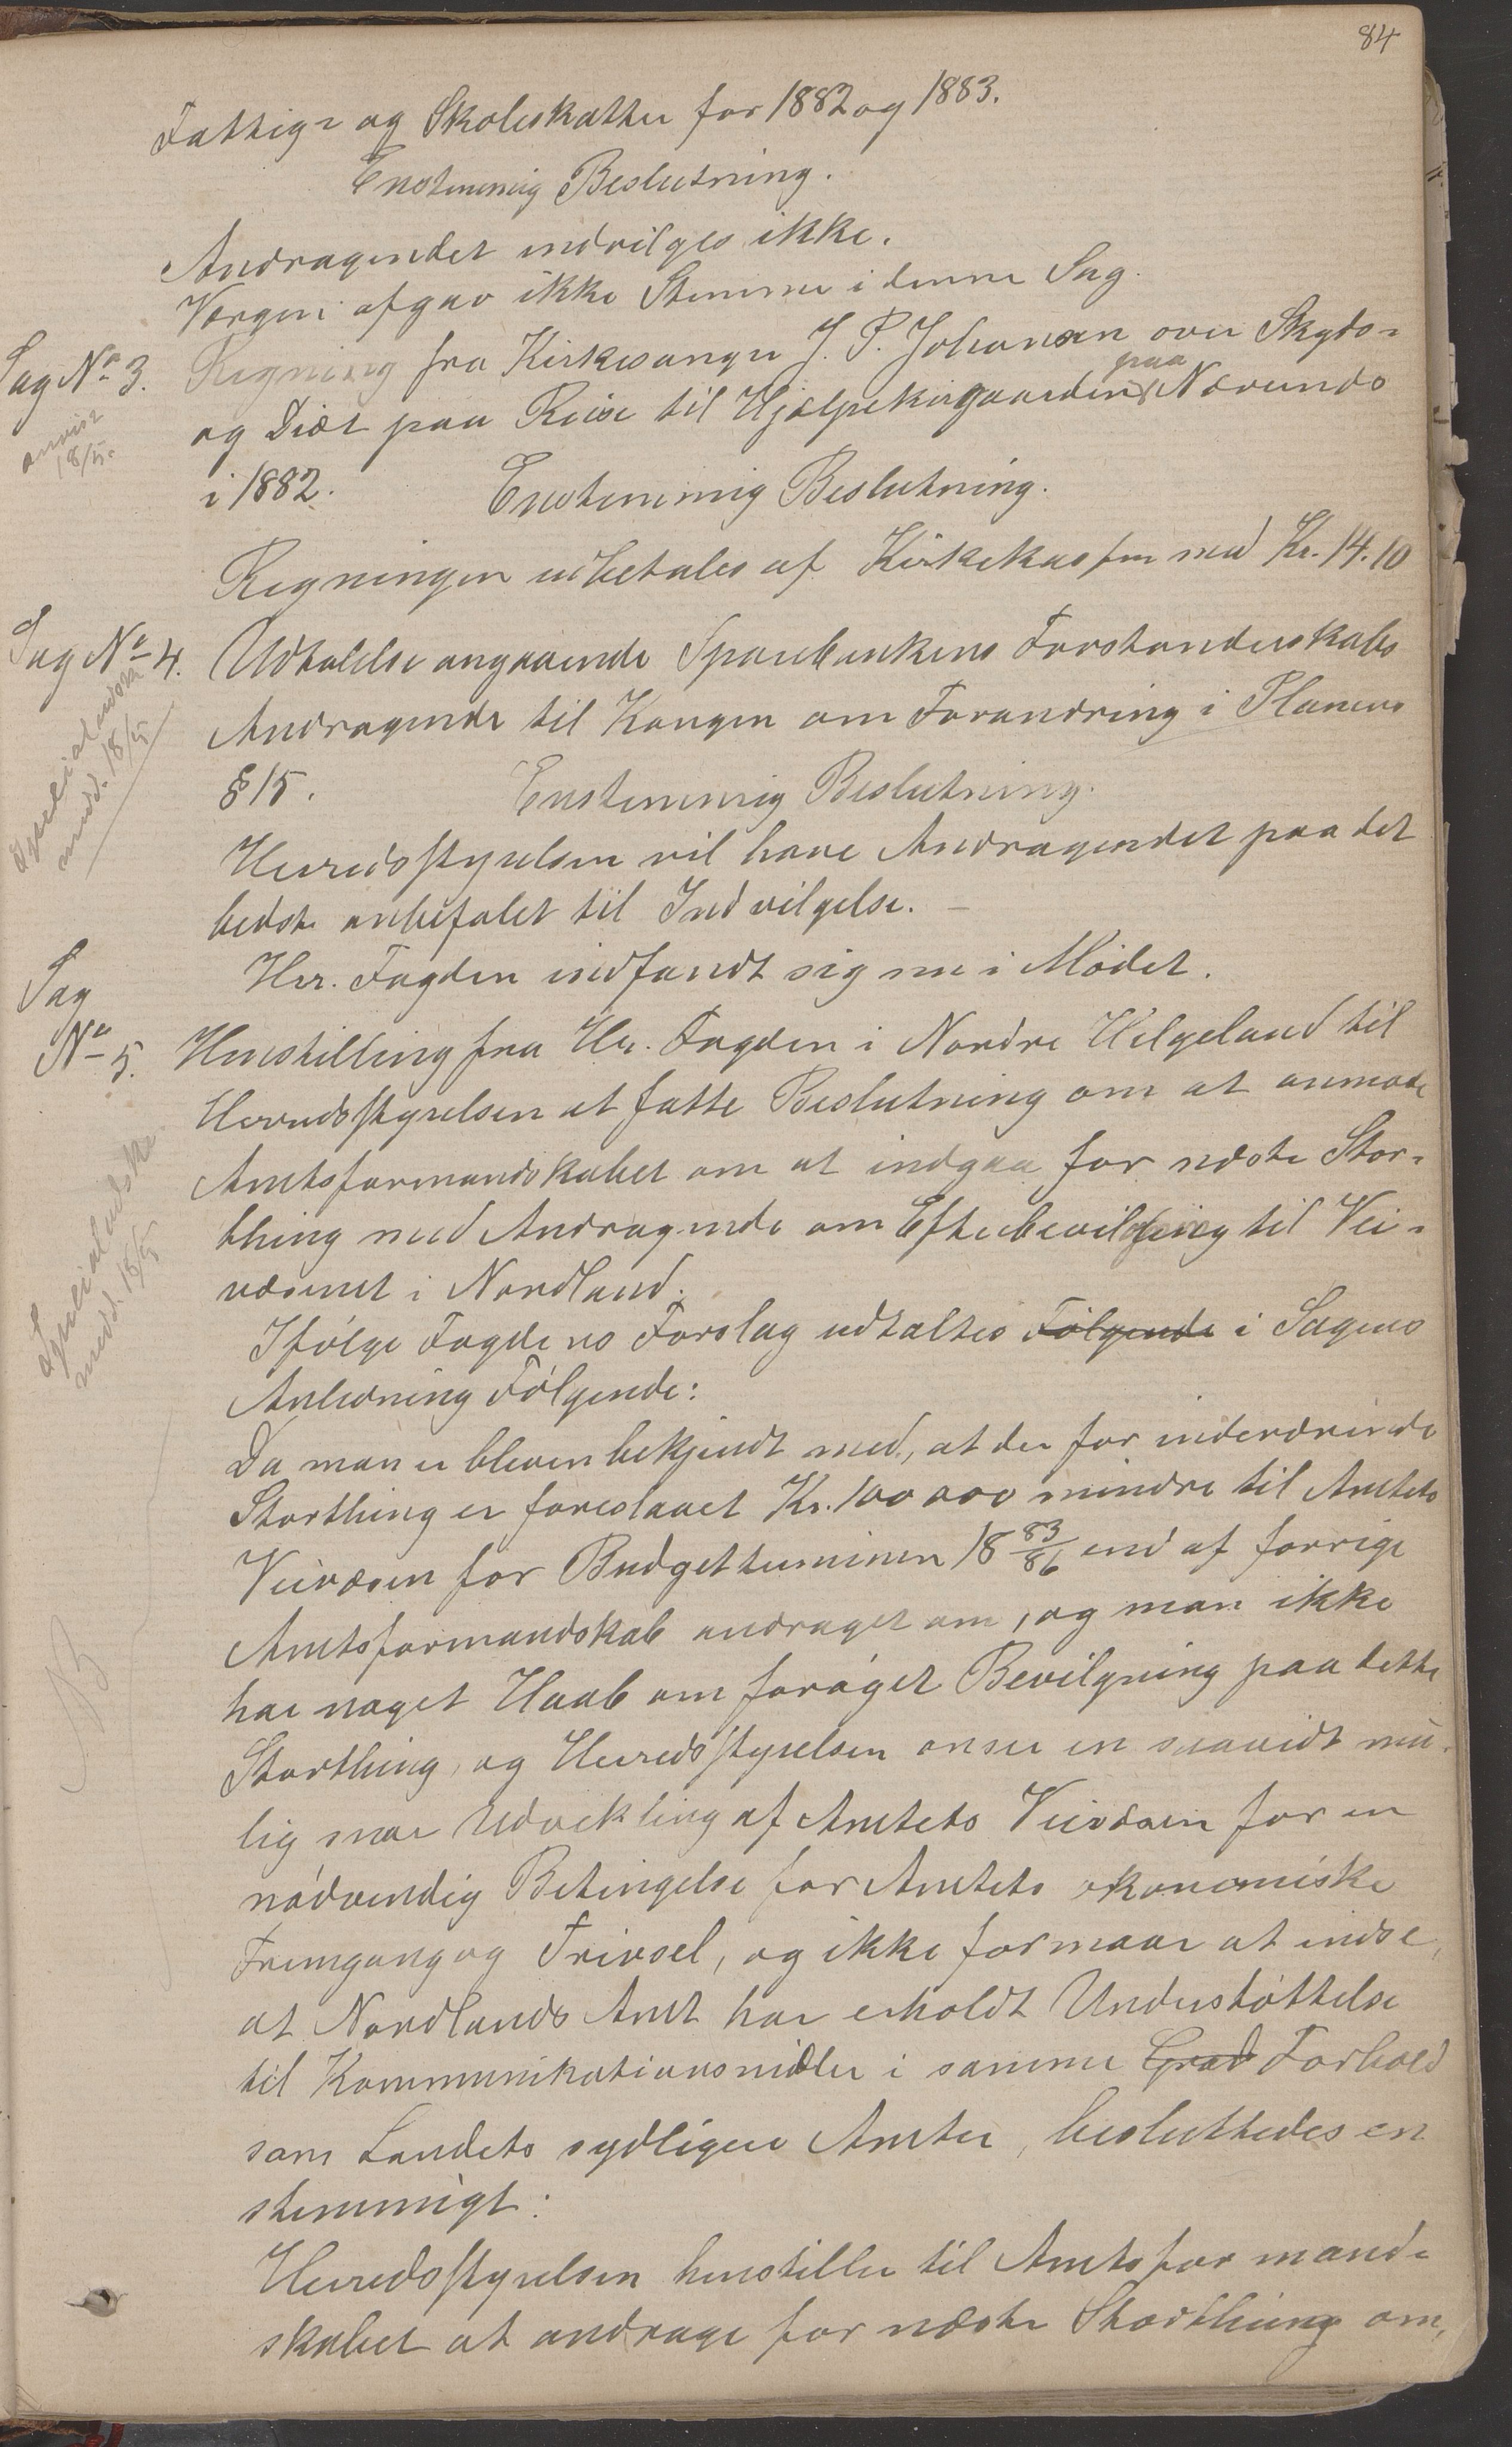 84
Fattig- og Skoleskatter for 1882 og 1883.
Enstemmig Beslutning.
Andragendet indvilges ikke.
Vorgen afgav ikke Stemme i denne Sag.
Sag No 3.
anvist
18/5.
Regning fra Kirkesanger J. P. Johansen over Skyds-
og Diæt paa Reise til Hjælpekirgaarden paa Næsunds
i 1882. Enstemmig Beslutning.
Regningen udbetales af Kirkekassen med Kr. 14.10
Sag No 4.
Specialudskr.
medd. 18/5
Udtalelse angaaende Sparebankens Forstanderskabs
Andragende til Kongen om Forandring i Planens
§ 15. Enstemmig Beslutning.
Herredsstyrelsen vil have Andragendet paa det
bedste anbefalet til Indvilgelse. –
Hr. Fogden indfandt sig nu i Mødet.
Sag
No 5.
Specialudskr.
medd. 18/5
Henstilling fra Hr. Fogden i Nordre Helgeland til
Herredsstyrelsen at fatte Beslutning om at anmode
Amtsformandskabet om at indgaa for næste Stor-
thing med Andragende om Efterbevilgning til Vei-
væsenet i Nordland.
Ifølge Fogdens Forslag udtaltes Følgende i Sagens
Anledning Følgende:
Da man er bleven bekjendt med, at der for inderværende
Storthing er foreslaaet Kr. 100 000 mindre til Amtets
Veivæsen for Budgetterminen 18 83/86 end af forrige
Amtsformandskab andraget om, og man ikke
har noget Haab om forøget Bevilgning paa dette
Storthing, og Herredsstyrelsen anser en saavidt mu-
lig snar Udvekling af Amtets Veivæsen for en
nødvendig Betingelse for Amtets økonomiske
Fremgang og Trivsel, og ikke formaar at indse,
at Nordlands Amt har erholdt Understøttelse
til Kommunikationsmidler i samme Grad Forhold
som Landets sydligere Amter, besluttedes en
stemmigt:
Herredsstyrelsen henstiller til Amtsformand-
skabet at andrage for næste Storthing om,